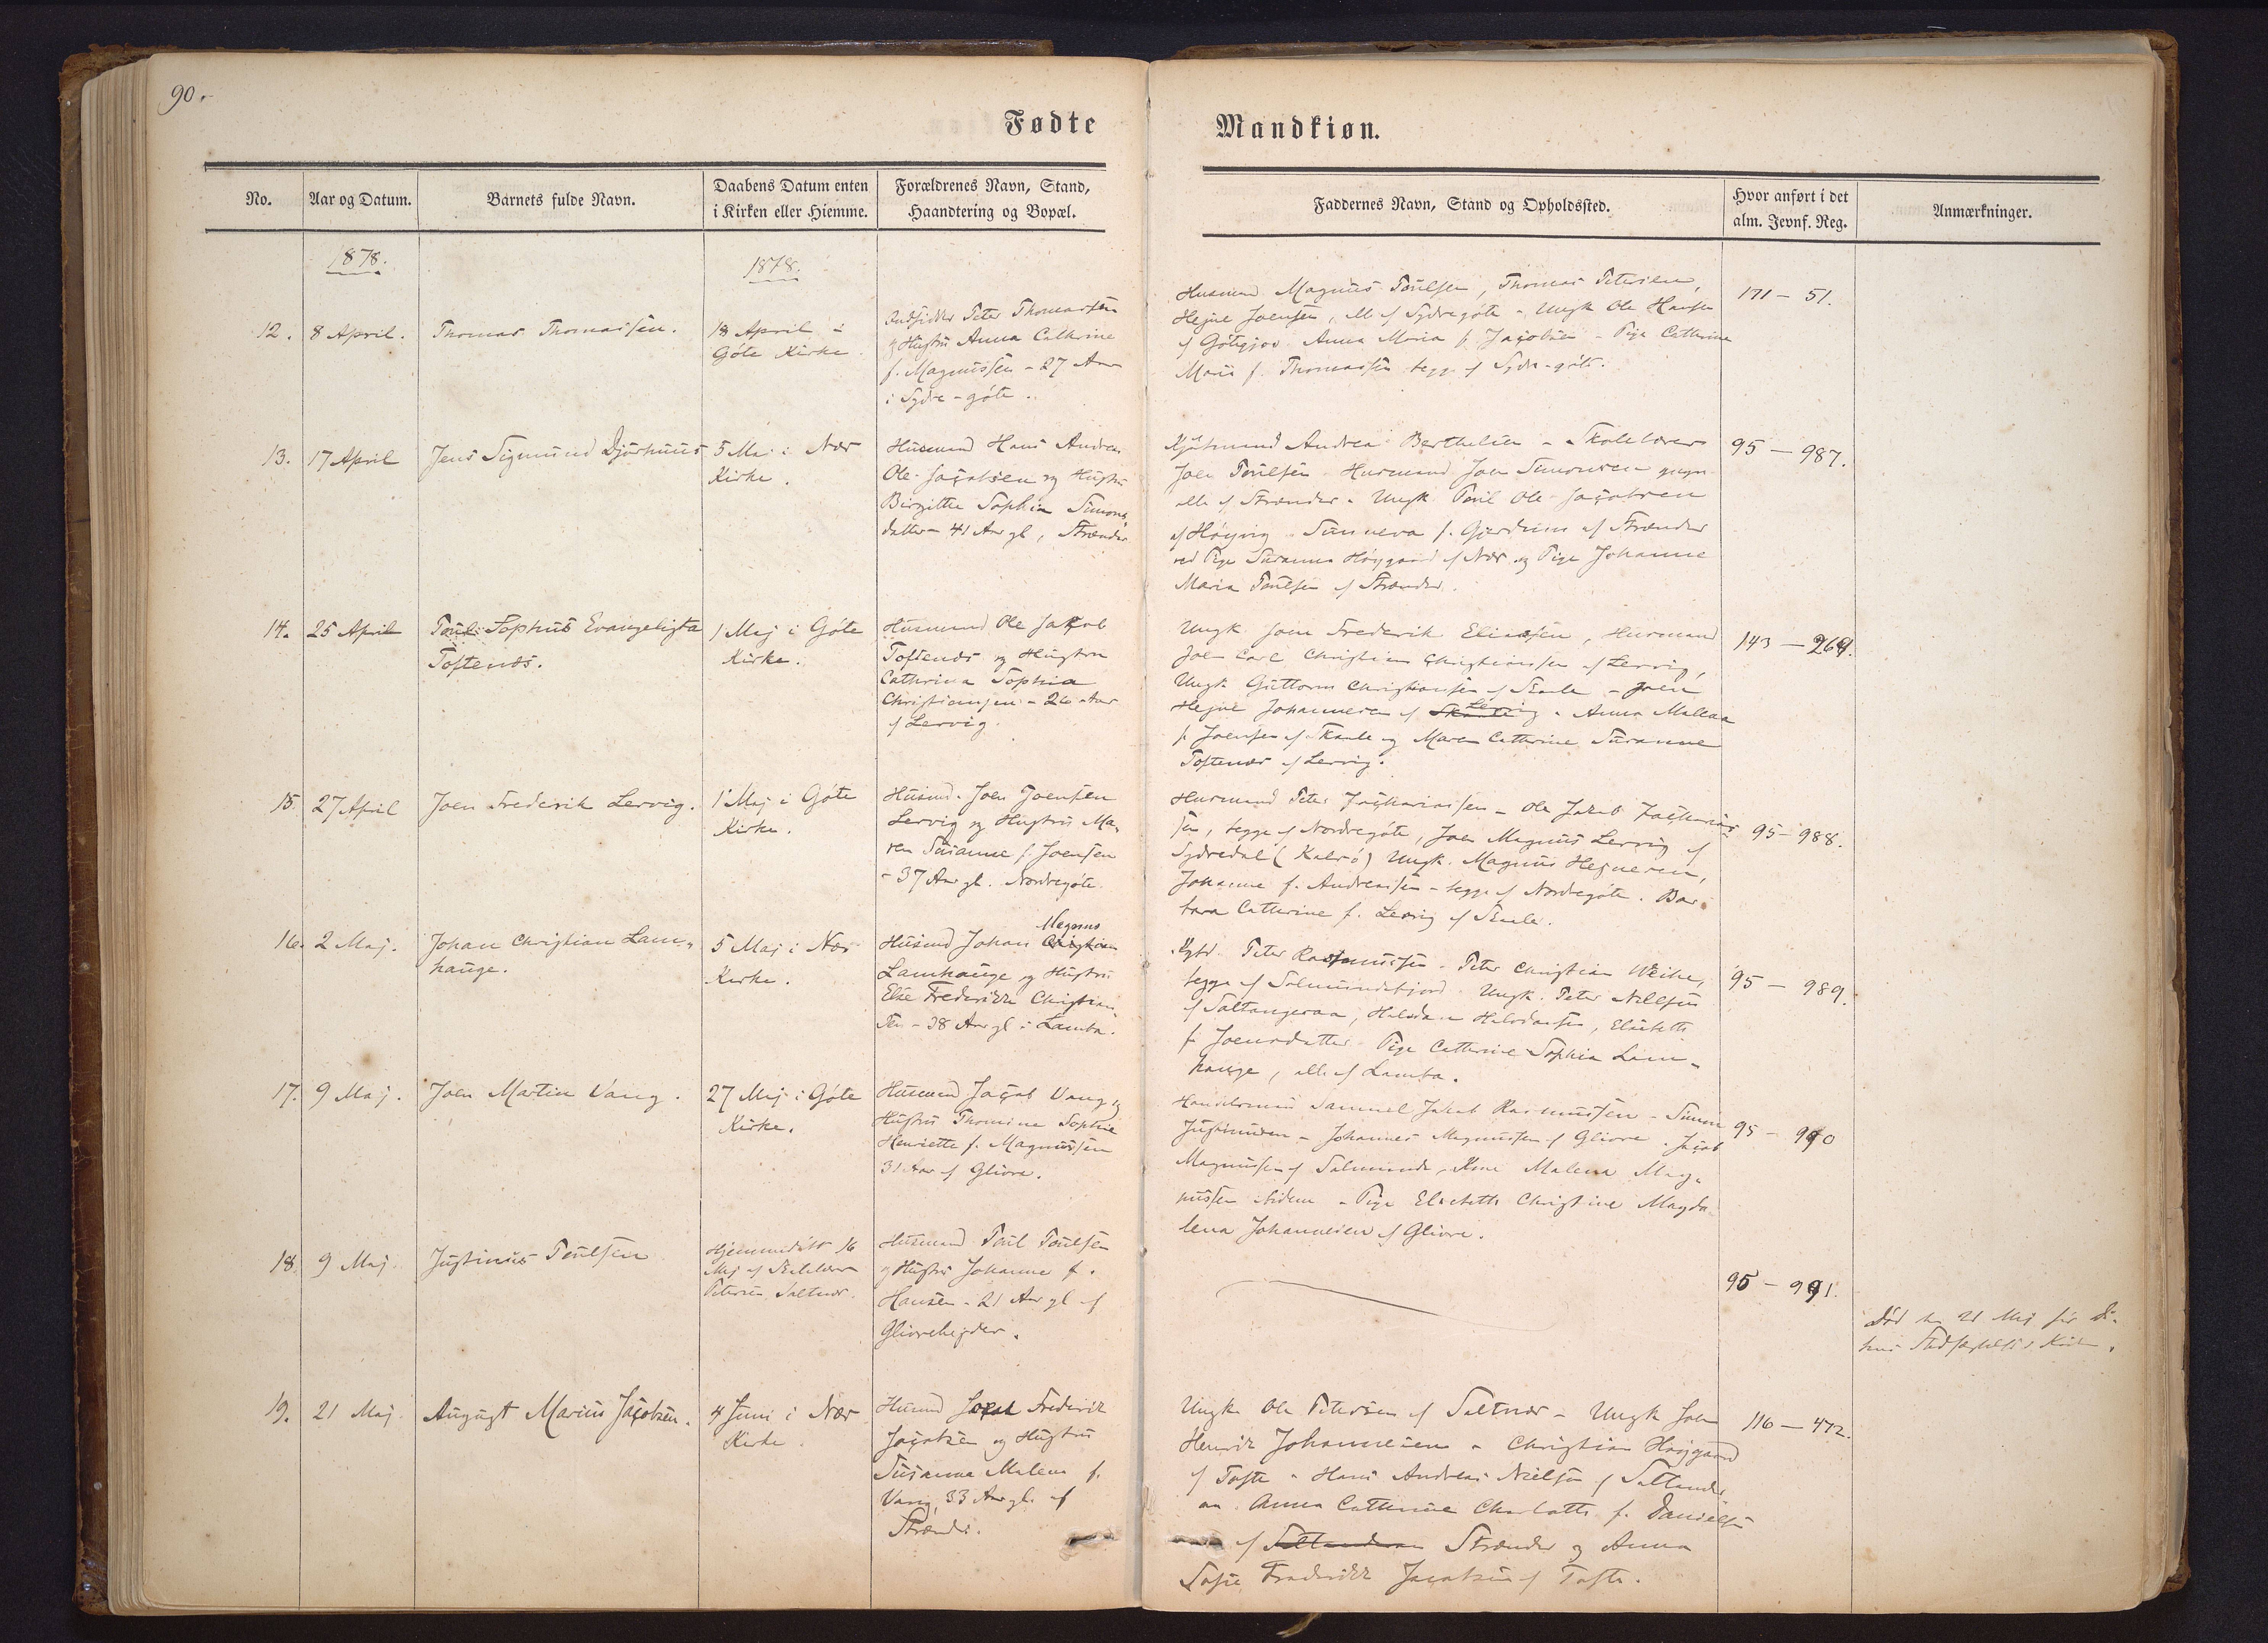 90.
Fødte
Mandkiøn.
No.
Aar og Datum.
Barnets fulde Navn.
Daabens Datum enten
i Kirken eller Hiemme.
Forældrenes Navn, Stand,
Haandtering og Bopæl.
Faddernes Navn, Stand og Opholdssted.
Hvor anført i det
alm. Jevnf. Reg.
Anmærkninger.
1878.
1878.
12.
8 April.
Thomas Thomassen.
18 April i
Göte Kirke.
Indsidder Peter Thomassen
og Hustru Anna Cathrine
f. Magnussen - 27 Aar
i Sydre-göte.
Husmand Magnus Poulsen, Thomas Petersen,
Hejne Joensen, alle af Sydregöte - Ungk Ole Hansen
af Götegjov Anna Maria f. Jacobsen - Pige Cathrine
Maria f. Thomassen begge af Sydre-göte.
171 - 51.
13.
17 April
Jens Sigmund Djurhuus
5 Maj i Næs
Kirke.
Husmand Hans Andreas
Ole Jacobsen og Hustru
Birgitte Sophia Simons
datter - 41 Aar gl, Strænder
Andreas Berthelsen - Skolelærer
Joen Poulsen Husmand Joen Simonsen
alle af Strænder - Ungk Poul Ole Jacobsen
af Höyvig Sunneva f. Gjerdum af Strænder
Pige Susanna Höygaard af Næs og Pige Johanne
Maria Poulsen af Strænder.
95 - 987.
14.
25 April
Poul Sophus Evangelista
Toftenæs.
1 Maj i Göte
Kirke.
Husmand Ole Jakob
Toftenæs og Hustru
Cathrina Sophia
Christiansen - 26 Aar
af Lervig.
Ungk Joen Frederik Eliasen, Husmand
Joen Carl Christian Christiansen af Lervig,
Ungk Guttorm Christiansen af Skaale - Joen
Hejne Johannesen af Skaale Lervig - Anna Malena
f. Joensen af Skaale og Maren Cathrine Susanne
Toftenæs af Lervig.
143 - 269.
15.
27 April
Joen Frederik Lervig.
1 Maj i Göte
Kirke.
Husmd. Joen Joensen
Lervig og Hustru Ma-
ren Susanne f. Joensen
- 37 Aar gl. Nordregöte.
Husmand Peter Zachariassen - Ole Jakob Zacharias-
sen, begge af Nordregöte, Joen Magnus Lervig af
Sydredal (Kalsö) Ungk. Magnus Hejnesen,
Johanne f. Andreassen - begge af Nordregöte. Bar-
bara Cathrine f. Lervig af Skaale.
95 - 988.
16.
2 Maj.
Johan Christian Lam-
hauge.
5 Maj i Næs
Kirke.
Husmd Johan Christian Magnus
Lamhauge og Hustru
Else Frederikke Christian
sen - 38 Aar gl i Lamba.
Peter Rasmussen - Peter Christian Weihe,
begge af Solmundefjord Ungk. Peter Nielsen
af Saltangeraa, Halvdan Halvdansen, Elsebeth
f. Joensdatter Pige Cathrine Sophia Lam-
hauge, alle af Lamba.
95 - 989.
17.
9 Maj.
Joen Martin Vang.
27 Maj i Göte
Kirke.
Husmand Jacob Vang og
Hustru Thomine Sophie
Henriette f. Magnussen
31 Aar af Glivre.
Handelsmand Samuel Jakob Rasmussen - Simon
Justinusen - Johannes Magnussen af Glivre. Jacob
Magnussen af Solmunde, Kone Malena Mag-
nussen ibidem - Pige Elsebeth Christine Magda
lena Johannesen af Glivre.
95 - 990
18.
9 Maj.
Justinus Poulsen
Hjemmedöbt 16
Maj af Skolelærer
Petersen, Saltnæs.
Husmand Poul Poulsen
og Hustru Johanne f.
Hansen - 21 Aar gl af
Glivrehejder.
95 - 991.
Död den 21 Maj för Daa-
bens Stadfæstelse i Kirken.
19.
21 Maj.
August Marius Jacobsen.
4 Juni i Næs
Kirke.
Husmd Jacob Frederik
Jacobsen og Hustru
Susanna Malena f.
Vang, 33 Aar gl. af
Strænder.
Ungk Ole Petersen af Saltnæs - Ungk Joen
Henrik Johannesen - Christian Höjgaard
af Tofte - Hans Andreas Nielsen af Saltander
aa. Anna Cathrine Charlotte f. Danielsen
af Saltanderaa Strænder og Anna
Sofie Frederikke Jacobsen af Tofte.
116 - 472.